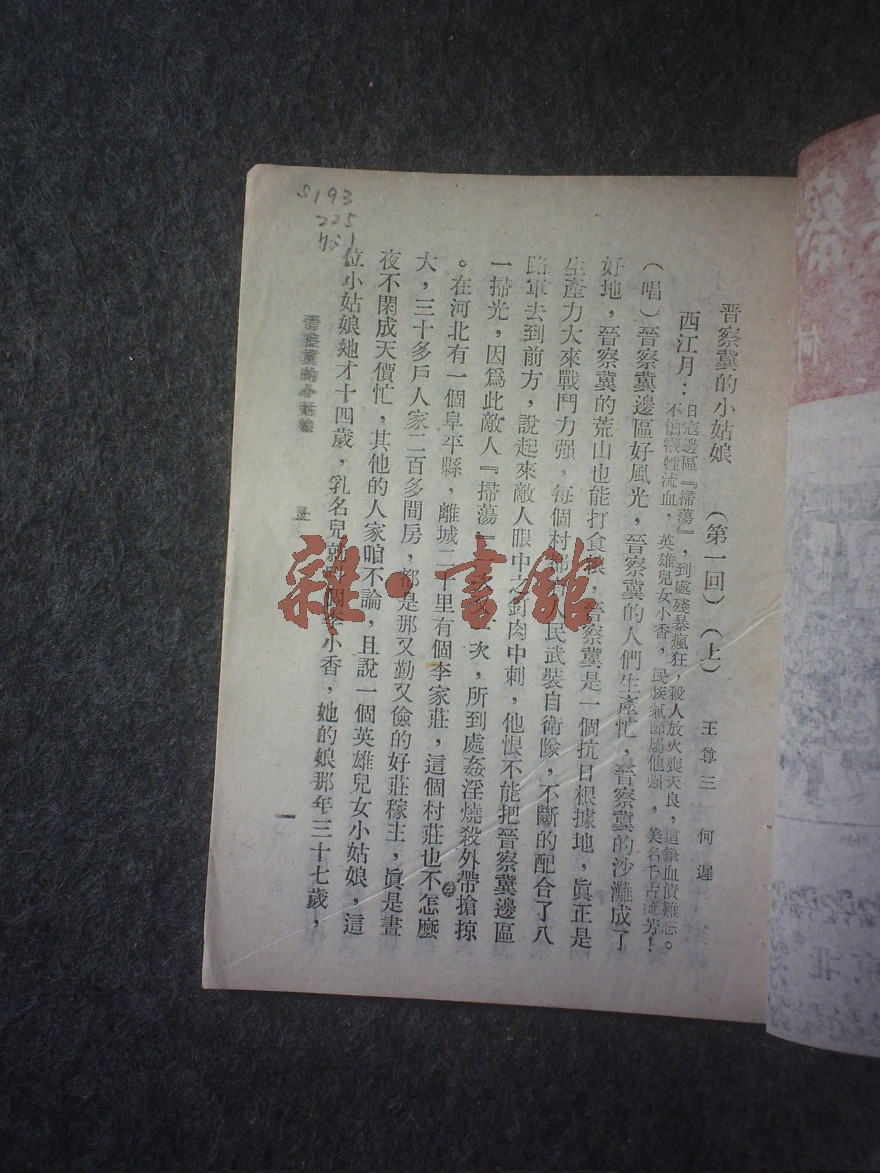 晉察冀的小姑娘 (第一回)(上) 王尊三 何遲
西江月:日寇邊區『掃蕩』,到處殘暴瘋狂,殺人放火喪天良,這筆血債難忘。
不怕犧牲流血,英雄兒女小香,民族氣節屬他强,美名千古流芳!
(唱)晉察冀邊區好風光,晉察冀的人們生產忙,晉察冀的沙灘成了
好地,晉察冀的荒山也能打食糧,晉察冀是一個抗日根據地,眞正是
生產力大來戰鬥力强,每個村都 人民武裝自衛隊,不斷的配合了八
路軍去到前方,說起來敵人眼中之釘肉中刺,他恨不能把晉察冀邊區
一掃光,因爲此敵人『掃蕩』 次,所到處姦淫燒殺外帶搶掠
。在河北有一個阜平縣,離城二十里有個李家莊,這個村莊也不怎麼
大,三十多戶人家二百多間房,都是那又勤又儉的好莊稼主,眞是晝
夜不閑成天價忙,其他的人家咱不論,且說一個英雄兒女小姑娘,這
位小姑娘她才十四歲,乳名兒就叫 李小香,她的娘那年三十七歲,
晉察冀的小姑娘
上
一
S193
225
雜·書館
察
何